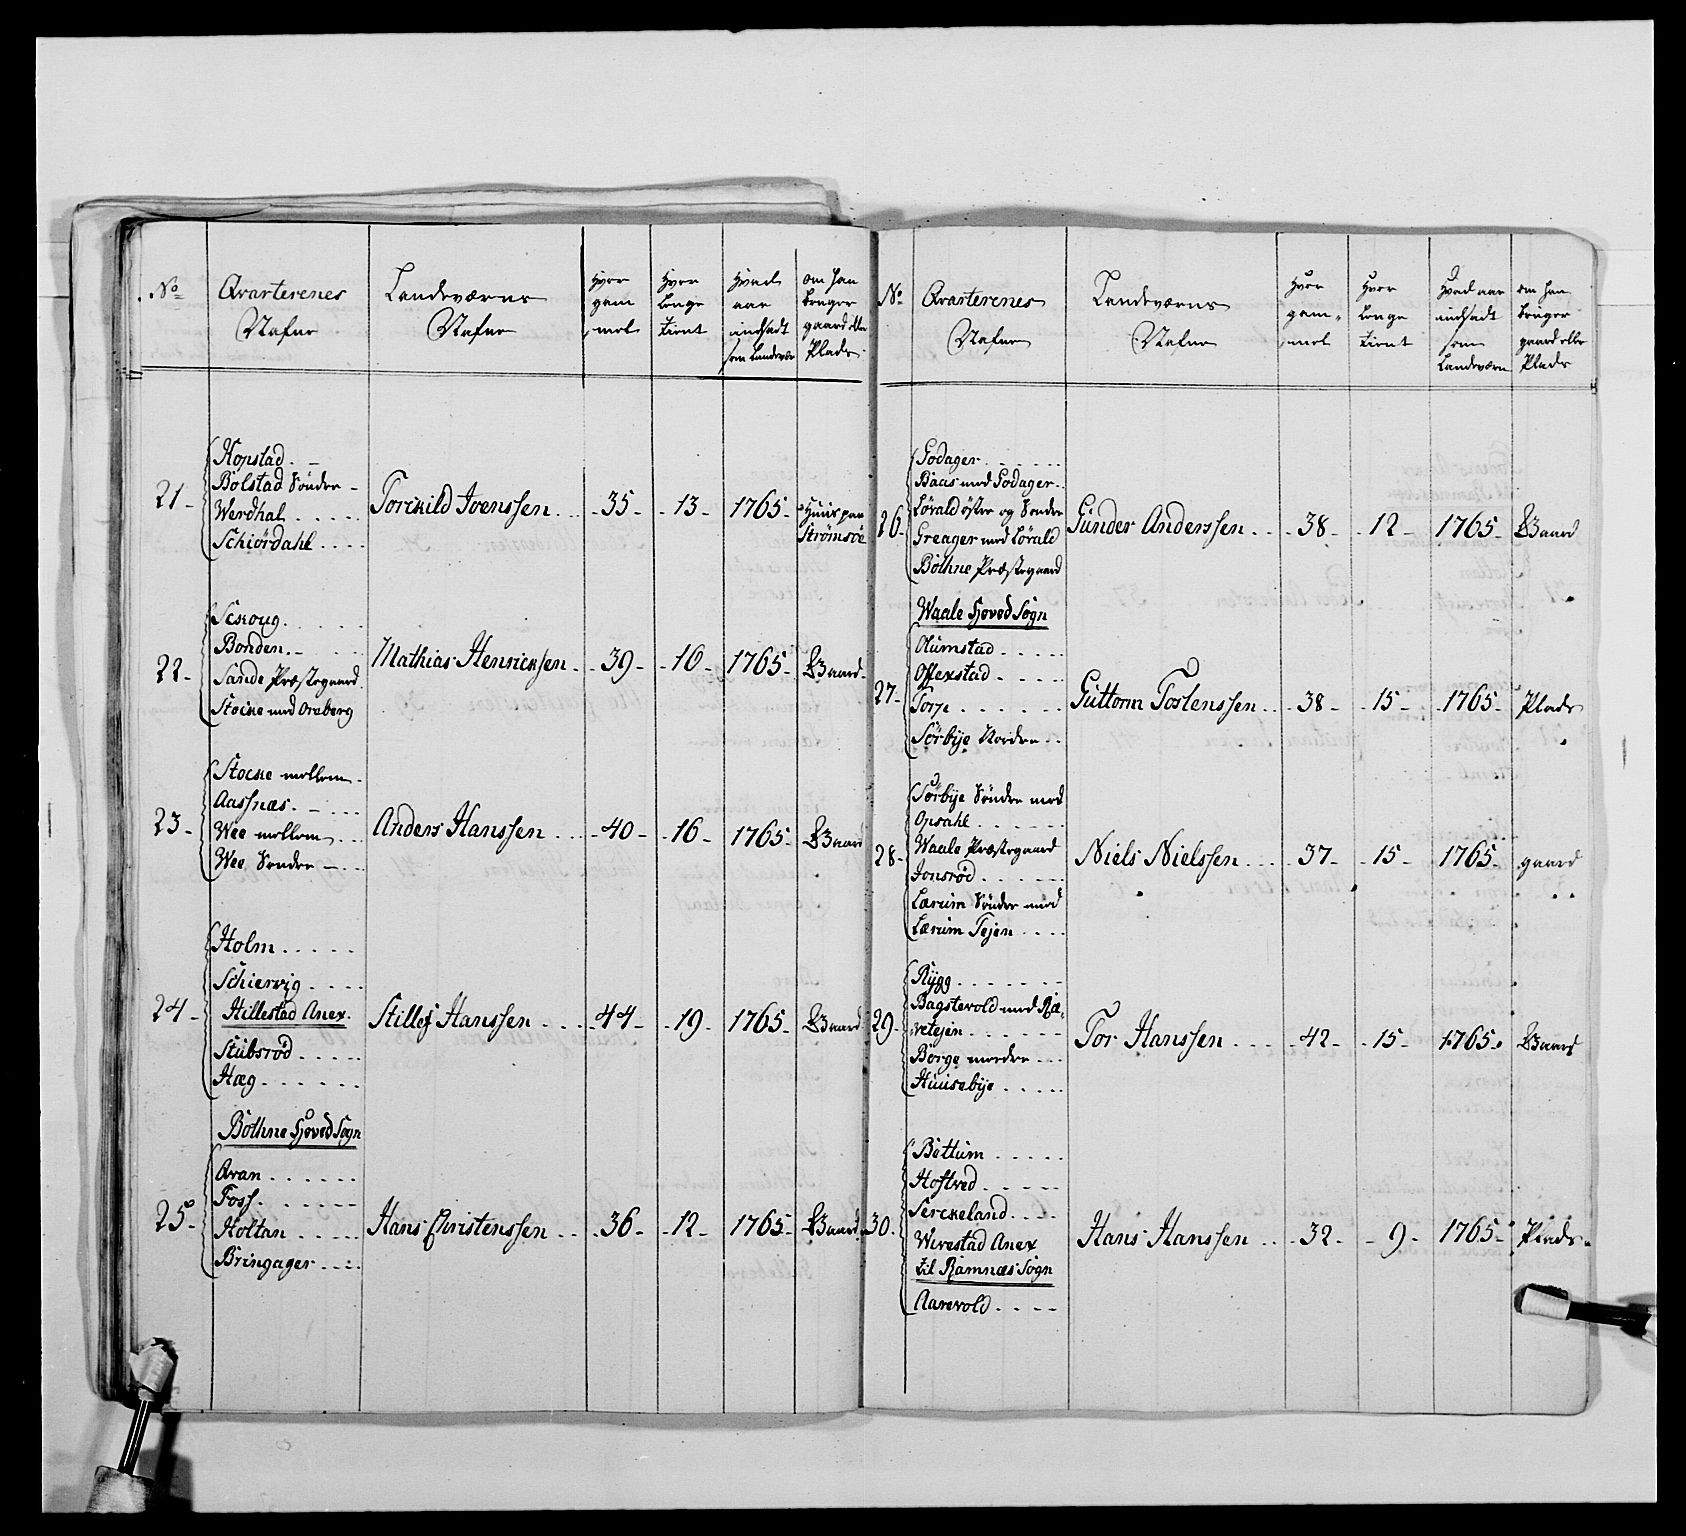 No
Qvarterenes
Nafne
Landeværns
Nafne
Hvor
gam
mel
Hvor
lenge
tient
Hvad
aar
andsadt
som Landevær
om han
bruger
gaard elle
Plads
21 -
Kopstad. -
Bolstad Søndre -
Werdhal . . . .
Schiørdahl . . . .
Torckild Ivenssen . .
- 35 -
- 13 -
1765 -
Strømsøe
22 -
Sckoug. . . . .
Bonden. - . .
Sande Præstegaard.
Stocke med Oreberg
Mathias Henricksen .
- 39 -
- 16 -
1765 -
Gaard -
23 -
Stocke mellem -
Aassnæs. - . . .
Wee mellem . . .
Wee Søndre - . .
Anders Hanssen . . .
- 40 -
- 16 -
1765 -
Gaard
24 -
Holm . . . . .
Schiervig . . . .
Hillestad Anex.
Stubsrød . . . .
Hæg . . . . . .
Stillef Hanssen . . .
- 44 -
- 19 -
1765 -
Gaard
Bothne Hoved Sogn
25 -
Qvan . . . . . .
Foss. . . . . . .
Holtan . . . . .
Bringager . . . .
Hans Christenssen . .
- 36 -
- 12 -
1765 -
Gaard
No
Qvarterenes
Nafne
Landeværns
Nafne
Hvor
gam-
mel
Hvor
lenge
tient
Hvad aar
andsadt
som
Landeværn
om han
bruger
gaard elle
Plads
26 -
Godager. . . . . .
Baas med Godager. .
Lørald østre og Søndre
Greager med Lørald
Bothne Præstegaard
Gunder Anderssen . . .
- 38 -
- 12 -
1765 -
Gaard
Waale Hoved Sogn
27 -
Olumstad . . . . .
Offexstad . . . . .
Torp . . . . . .
Sørbye Nordre . .
Guttorm Tostenssen . .
- 38 -
- 15 -
1765 -
Plads
28 -
Sørbye Søndre med
Opsahl . . . . . .
Waale Præstegaard
Jonsrød . . . . .
Lærum Søndre med
Lærum Tejen . . . .
Niels Nielssen . . .
- 37 -
- 15 -
1765 -
gaard
29 -
Rygg . . . . . . .
Bagstevold med Ræ-
vetejen . . . . . .
Borge nordre . . .
Huusebye . . . . .
Tor Hanssen . . . .
- 42 -
- 15 -
1765 -
Gaard
30.
Bettum . . . . .
Hoftved . . . . .
Serckeland . . . .
Wivestad Anex
til Ramnæs Sogn
Aarevold . . . .
Hans Hanssen . . .
- 32 -
- 9 -
1765 -
Plads -